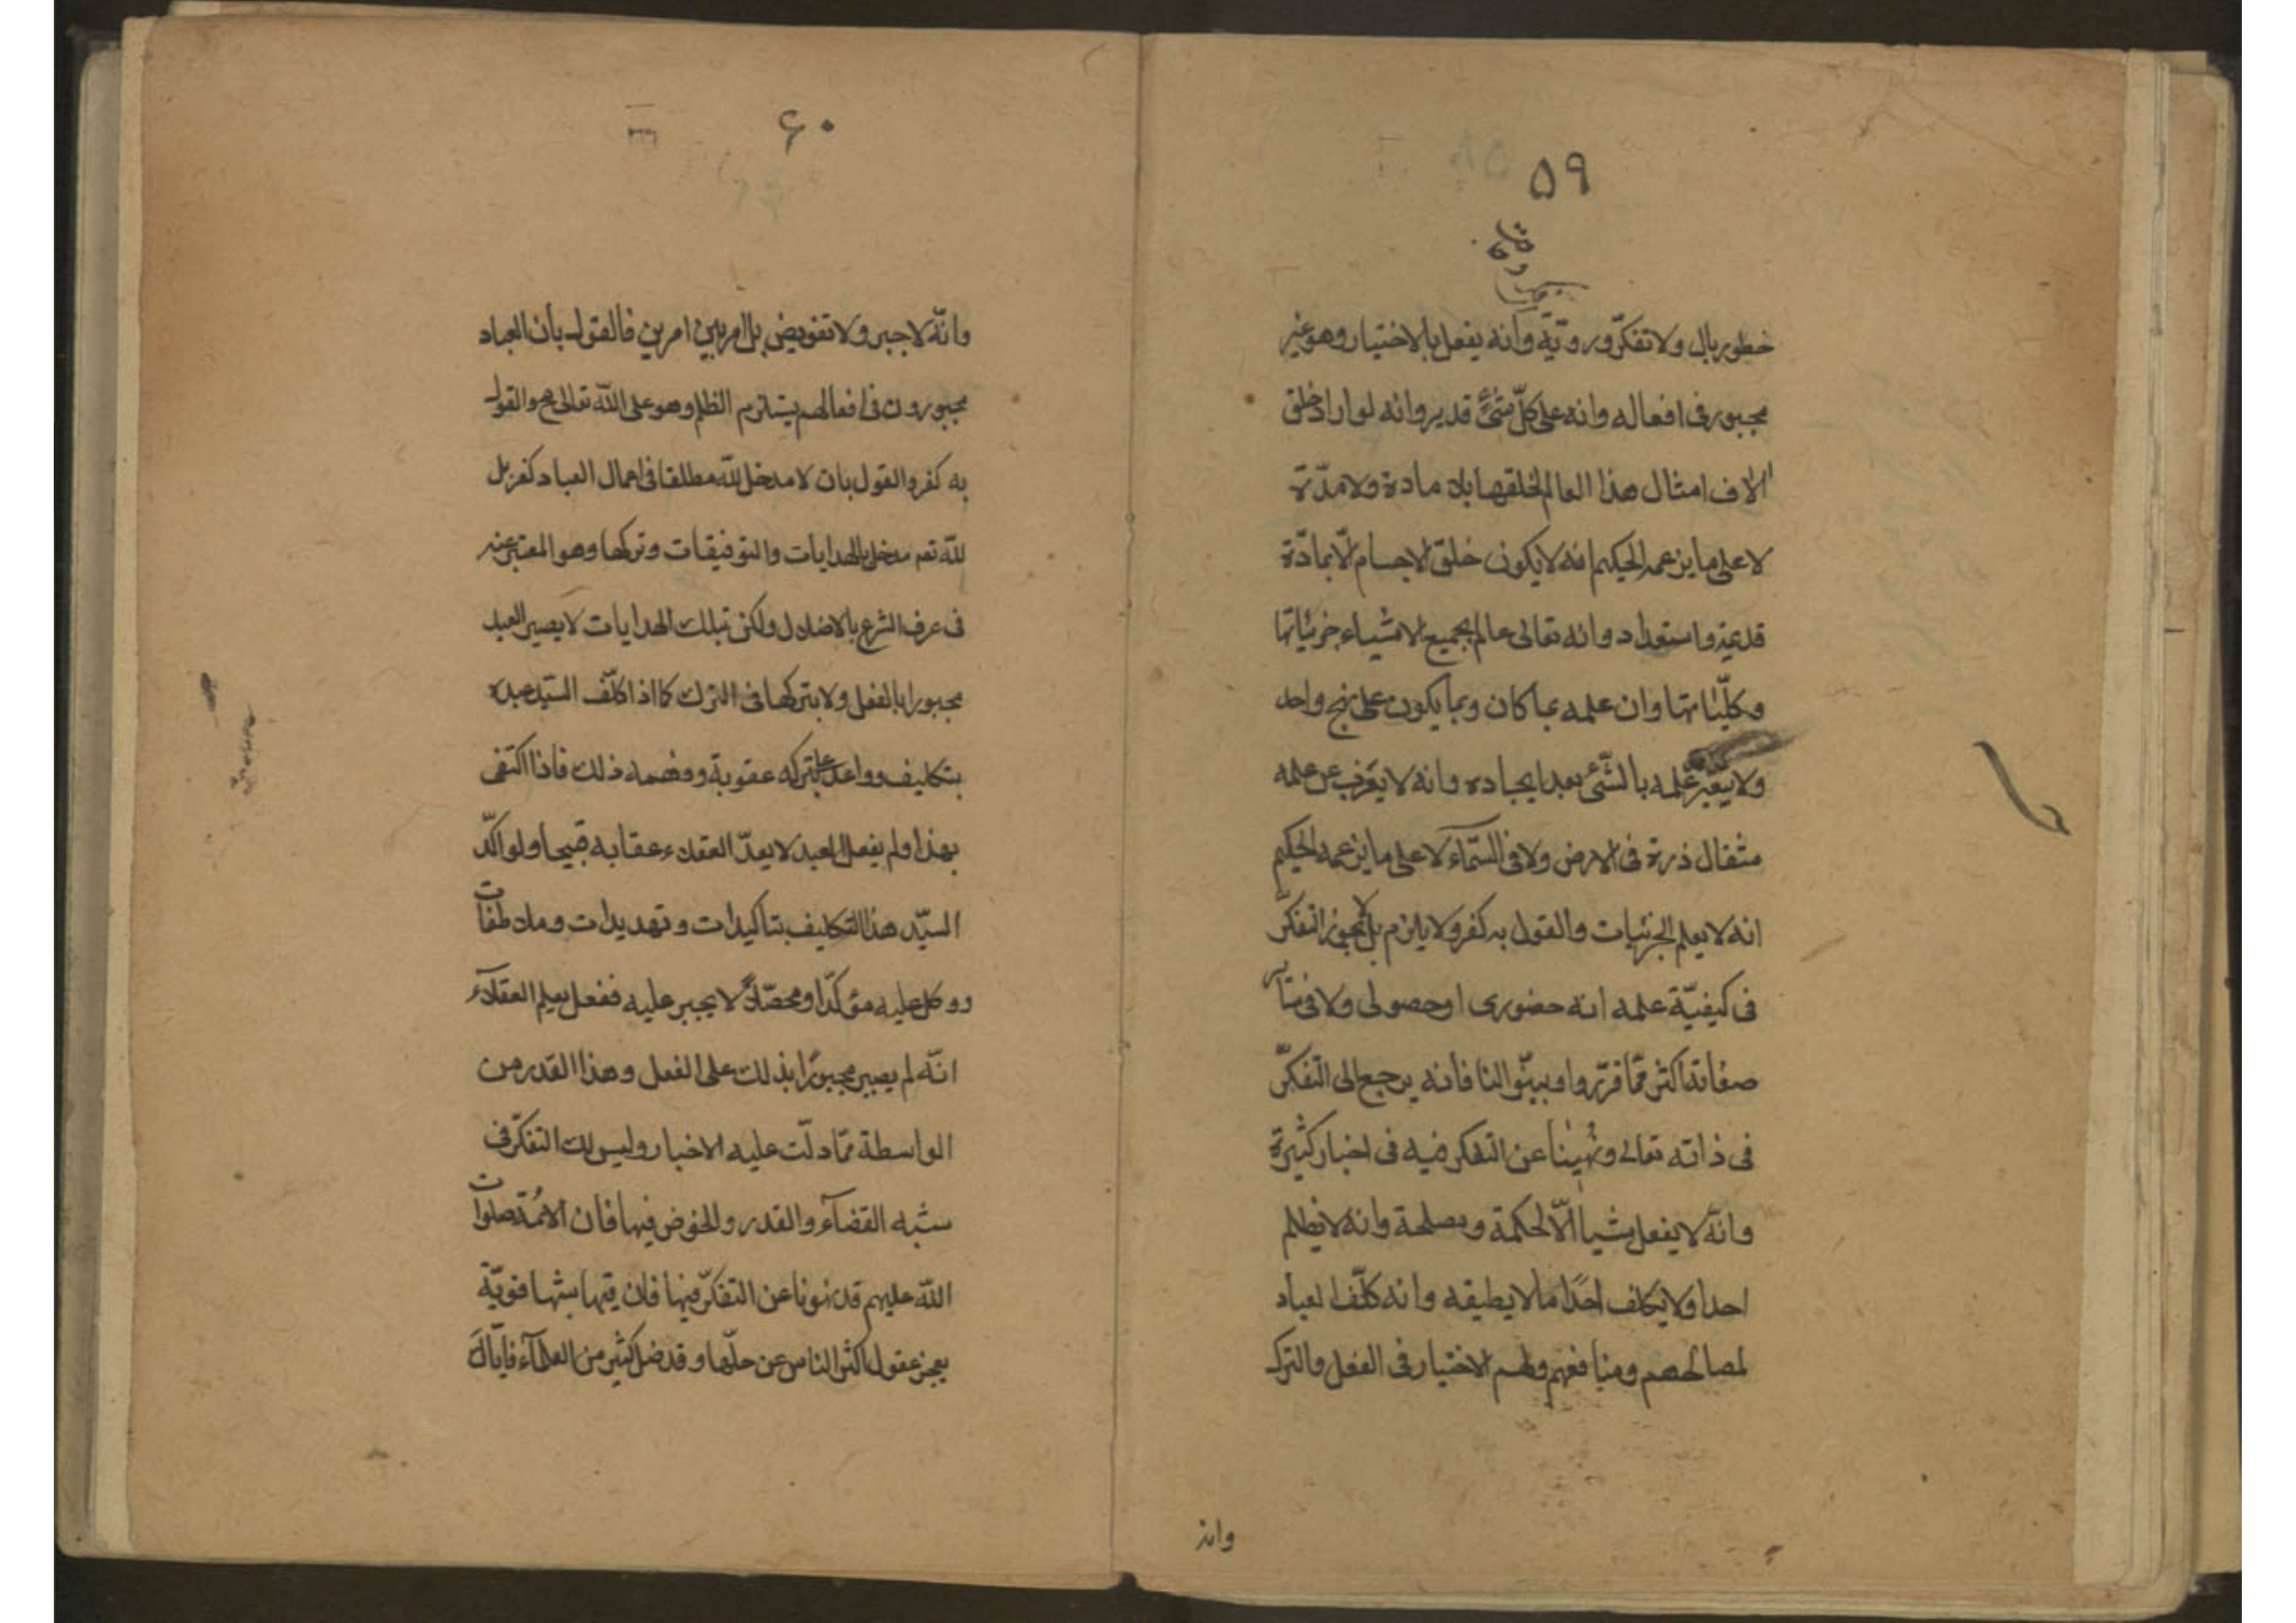 ۵۹
وقف
خطور بال ولا تفكّر وروّيّة وانه يفعل بالاختيار وهو غير
مجبور فى افعاله وانه على كلّ شئ قدير وانه لو اراد خلق
الاف امثال هذا العالم لخلقها بلا مادة ولا مدّة
لا على ما يزعمه الحكيم انه لا يكون خلق الاجسام الّا بمادّة
قديمة واستعداد وانه تعالى عالم بجميع الاشياء جزئياتها
وكلّياتها وان علمه بما كان وبما يكون على نهج واحد
ولا يتغيّر علمه بالشّئ بعد ايجاده وانه لا يعزب عن علمه
مثقال ذرة فى الارض ولا فى السّماء لا على ما يزعمه الحكيم
انه لا يعلم الجزئيات والقول به كفر ولا يلزم بل لا يجوز التفكّر
فى كيفيّة علمه انه حضورى او حصولى ولا فى ساير
صفاته اكثر ممّا قرّروا وبيّنوا لنا فانه يرجع الى التّفكّر
فى ذاته تعالى ونُهينا عن التفكر فيه فى اخبار كثيرة
وانّه لا يفعل شيا الّا لحكمة ومصلحة وانه لا يظلم
احدا ولا يكلف احدًا ما لا يطيقه وانه كلّف العباد
لمصالحهم ومنافعهم ولهم الاختيار فى الفعل والترك
وانه
۶۰
وانّه لا جبر ولا تفويض بل امر بين امرين فالقول بأن العباد
مجبورون فى افعالهم يستلزم الظلم وهو على الله تعالى مح والقول
به كفر والقول بان لا مدخل لله مطلقا فى اعمال العباد كفر بل
لله تعم مدخل بالهدايات والتوفيقات وتركها وهو المعتبر عنه
فى عرف الشرع بالاضلال ولكن بتلك الهدايات لا يصير العبد
مجبورا بالفعل ولا بتركها فى الترك كما اذا كلّف السّيد عبده
بتكليف وواعد على تركه عقوبة وفهمه ذلك فاذا اكتفى
بهذا ولم يفعل العبد لا يعدّ العقلاء عقابه قبيحا ولو اكّد
السيّد هذا التكليف بتاكيدات وتهديدات وملاطفات
ووكل عليه مؤكّدا ومحصّلاً لا يجبر عليه ففعل يعلم العقلاء
انّه لم يصير مجبورًا بذلك على الفعل وهذا القدر من
الواسطة ممّا دلّت عليه الاخبار وليس لك التفكّر فى
شبه القضآء والقدر والخوض فيها فان الائمّة صلوات
الله عليهم قد نهونا عن التفكّر فيها فان فيها شبها قويّة
يعجز عقول اكثر الناس عن حلّها وقد ضل كثير من العلمآء فايّاك